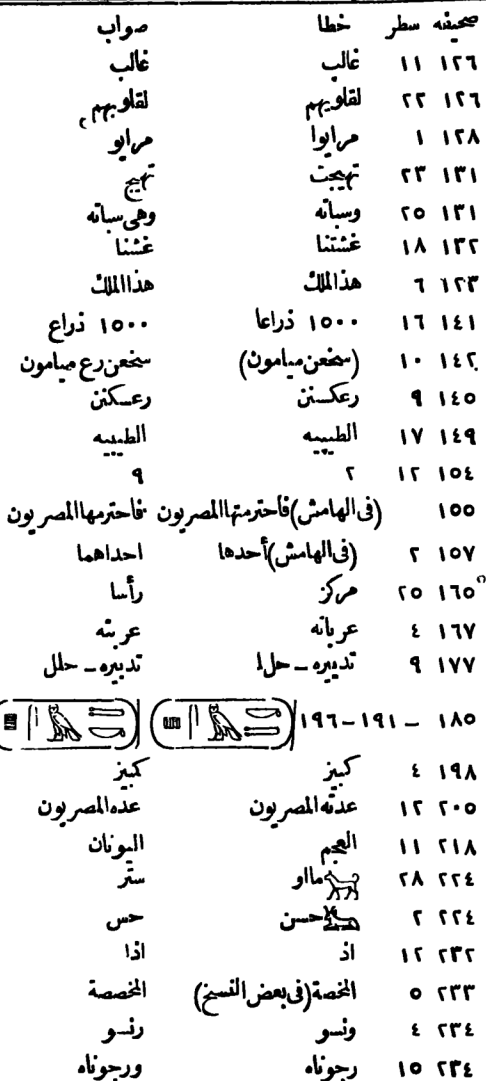 صحيفه سطر خطا صواب
١٢٦ ١١ غالب غالب
١٢٦ ٢٢ لقاويهم لقاوبهم
١٢٨ ١ مرايوا مرايو
١٣١ ٢٣ تهيجت تهيج
١٣١ ٢٥ وسباته وهى سباته
١٣٢ ١٨ غشتنا غشنا
١٢٣ ٦ هذالملك هذاالملك
١٤١ ١٦ ١٥٠٠ ذراعا ١٥٠٠ ذراع
١٤٢ ١٠ (سخعن ميامون) سخعن رع ميامون
١٤٥ ٩ رعكسنن رعسكنن
١٤٩ ١٧ الطيبيه الطيبيه
١٥٤ ١٢ ٢ ٩
١٥٥ (فى الهامش) فاحترمتها المصريون فاحترمها المصريون
١٥٧ ٢ (فى الهامش) أحدها احداهما
١٦٥ ٢٥ مركز رأسا
١٦٧ ٤ عربانه عربته
١٧٧ ٩ تدبيره ـ حلل تدبيره ـ حلل
١٨٥ ـ ١٩١ـ١٩٦
١٩٨ ٤ كبيز كمبيز
٢٠٥ ١٢ عدته المصريون عده المصريون
٢١٨ ١١ العجم اليونان
٢٢٤ ٢٨ مااو ستر
٢٢٤ ٢ حسن حس
٢٣٢ ١٢ اذ اذا
٢٣٣ ٥ المخصة (فى بعض النسخ) المخصصة
٢٣٤ ٤ ونسو رنسو
٢٣٤ ١٥ رجوناه ورجوناه